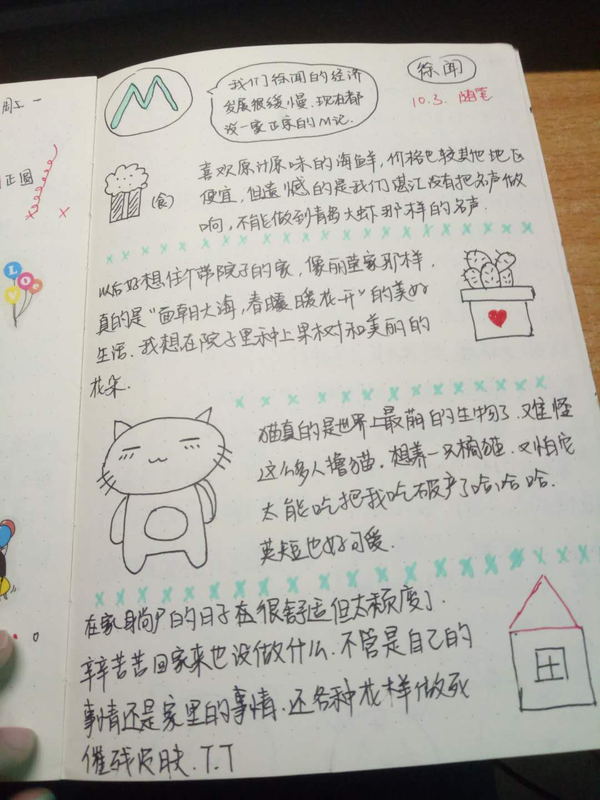 周五一
正圆
LOV
M
我们徐闻的经济
发展很缓慢.现在都
没一家正宗的M记.
徐闻
10.3. 随笔
(食)
喜欢原汁原味的海鲜,价格也较其他地区
便宜,但遗憾的是我们湛江没有把名声做
响,不能做到青岛大虾那样的名声.
以后好想住个带院子的家,像丽莹家那样.
真的是“面朝大海,春暖暖花开”的美好
生活.我想在院子里种上果树和美丽的
花朵.
猫真的是世界上最萌的生物了.难怪
这么多人撸猫.想养一只橘猫.又怕它
太能吃把我吃破产了哈哈哈.
英短也好可爱.
在家身尚尸的日子在很舒适但太颓废了.
辛辛苦苦回家来也没做什么.不管是自己的
事情还是家里的事情.还各种花样做死
催残皮肤.T.T